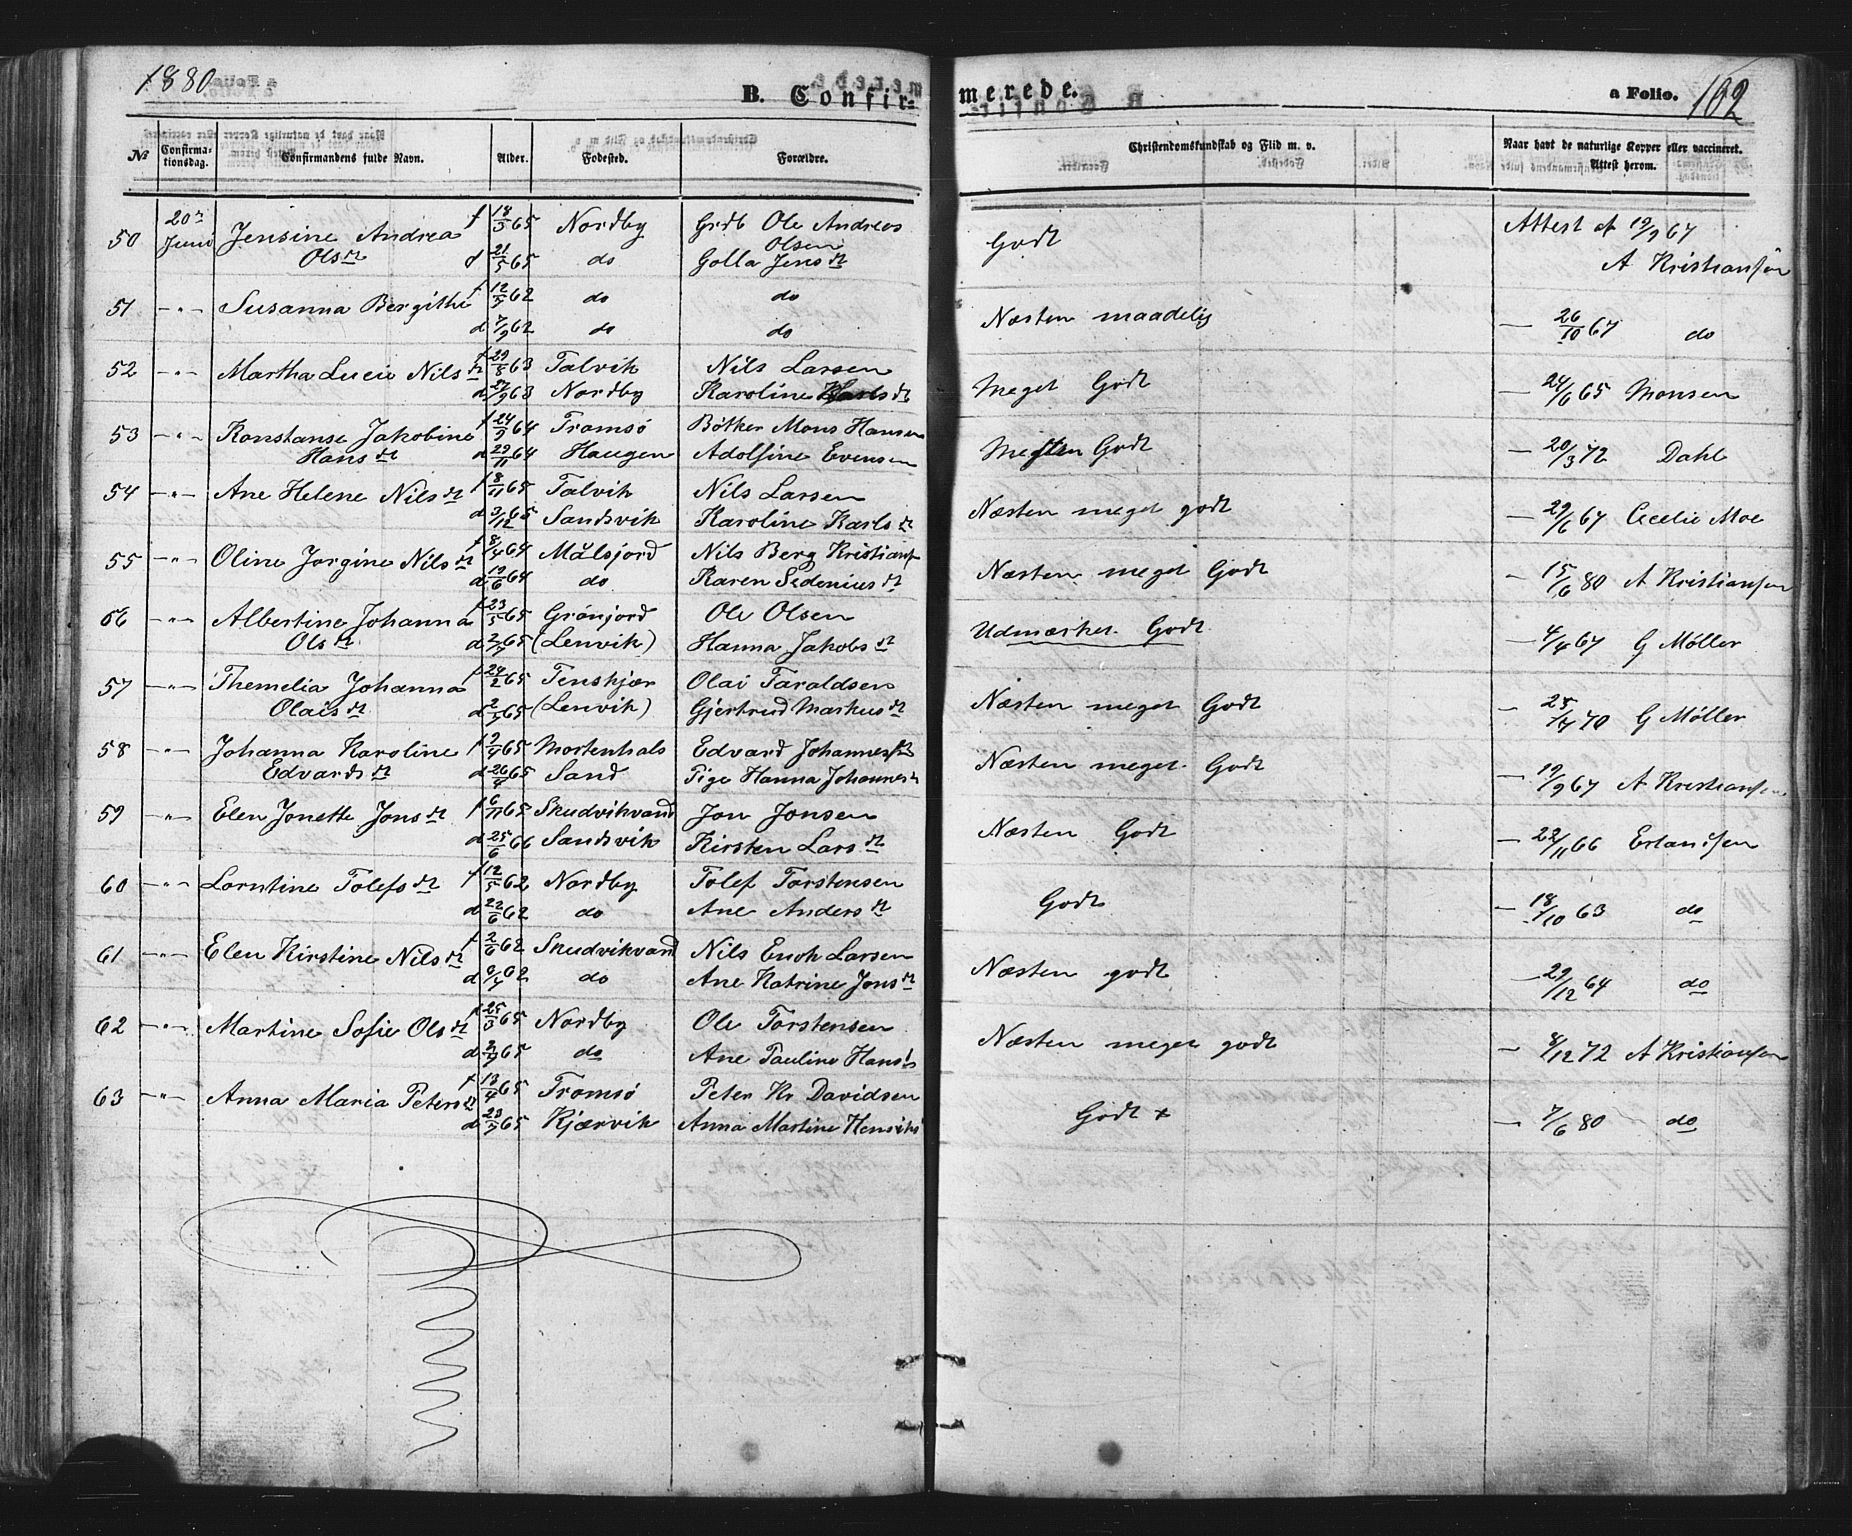 1880
B. Confirmerede.
a Folio. 102
No Confirmationsdag. Confirmandens fulde Navn. Alder. Fødested. Forældre. Christendomskundskab og Flid m. v. Naar havt de naturlige Kopper eller vaccineret. Attest herom.
50 20de Juni Jensine Andrea f 18/3 65 Nordby Grdb Ole Andreas Olsen Godt Attest af 19/9 67
Olsdt d 21/5 65 do Golla Jensdt A Kristiansen
51 -"- Susanna Bergithe f 12/7 62 do do Næsten maadelig
d 7/9 62 do do — 26/10 67 do
52 -"- Martha Lucie Nilsdt f 29/5 63 Talvik Nils Larsen Meget Godt
d 27/9 63 Nordby Karoline Karlsdt — 24/6 65 Monsen
53 -"- Konstanse Jakobine f 24/9 64 Tromsø Bøtker Mons Hansen Godt
Hansdt d 29/11 64 Haugen Adolfine Evensen — 20/3 72 Dahl
54 -"- Ane Helene Nilsdt f 8/11 65 Talvik Nils Larsen Næsten meget godt
d 3/12 65 Sandsvik Karoline Karlsdt — 29/6 67 Cecelie Moe
55 -"- Oline Jorgine Nilsdt f 8/4 64 Målsjord Nils Berg Kristians Næsten meget Godt
d 19/6 64 do Karen Sedeniusdt — 15/6 80 A Kristiansen
56 -"- Albertine Johanna f 23/5 65 Grønjord Ole Olsen Udmærket Godt
Olsdt d 2/7 65 (Lenvik) Hanna Jakobsdt — 4/4 67 G Møller
57 -"- Themelia Johanna f 24/2 65 Tenskjær Olai Taraldsen Næsten meget Godt
Olaisdt d 2/7 65 (Lenvik) Gjertrud Markusdt — 28/4 70 G Møller
58 -"- Johanna Karoline f 2/4 65 Mortenhals Edvard Johannes Næsten meget Godt
Edvardsdt d 26/4 65 Sand Pige Hanna Johannes — 19/9 67 A Kristiansen
59 -"- Elen Jonette Jonsdt f 6/11 65 Skudvikvand Jon Jonsen Næsten Godt
d 25/6 66 Sandsvik Kirsten Larsdt — 22/11 66 Erlandsen
60 -"- Lorntine Tolefsdt f 12/5 62 Nordby Tolef Torstensen Godt
d 22/6 62 do Ane Andersdt — 18/10 63 do
61 -"- Elen Kirstine Nilsdt f 2/6 62 Skudvikvand Nils Enoh Larsen Næsten godt
d 6/7 62 do Ane Katrine Jonsdt — 29/12 64 do
62 -"- Martine Sofie Olsdt f 25/3 65 Nordby Ole Torstensen Næsten meget godt
d 2/7 65 do Ane Pauline Hans — 8/12 72 A Kristiansen
63 -"- Anna Maria Petersdt f 13/4 65 Tromsø Peter Kr Davidsen Godt +
d 23/7 65 Kjærvik Anna Martine Henriks — 7/6 80 do